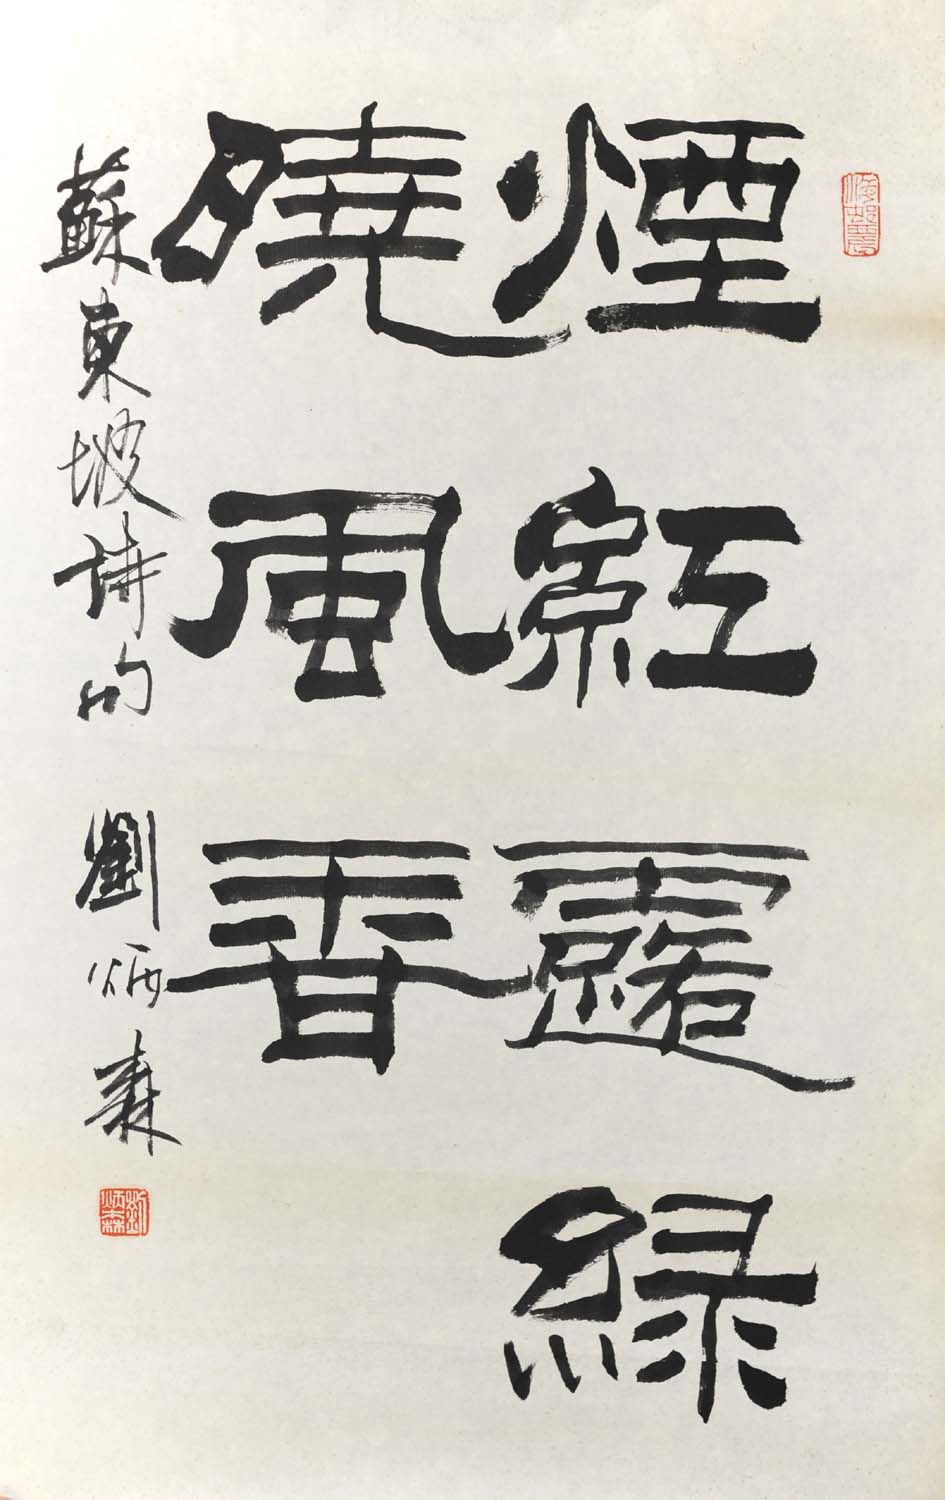 煙紅露綠
曉風香
蘇東坡詩句 劉炳森
劉炳森